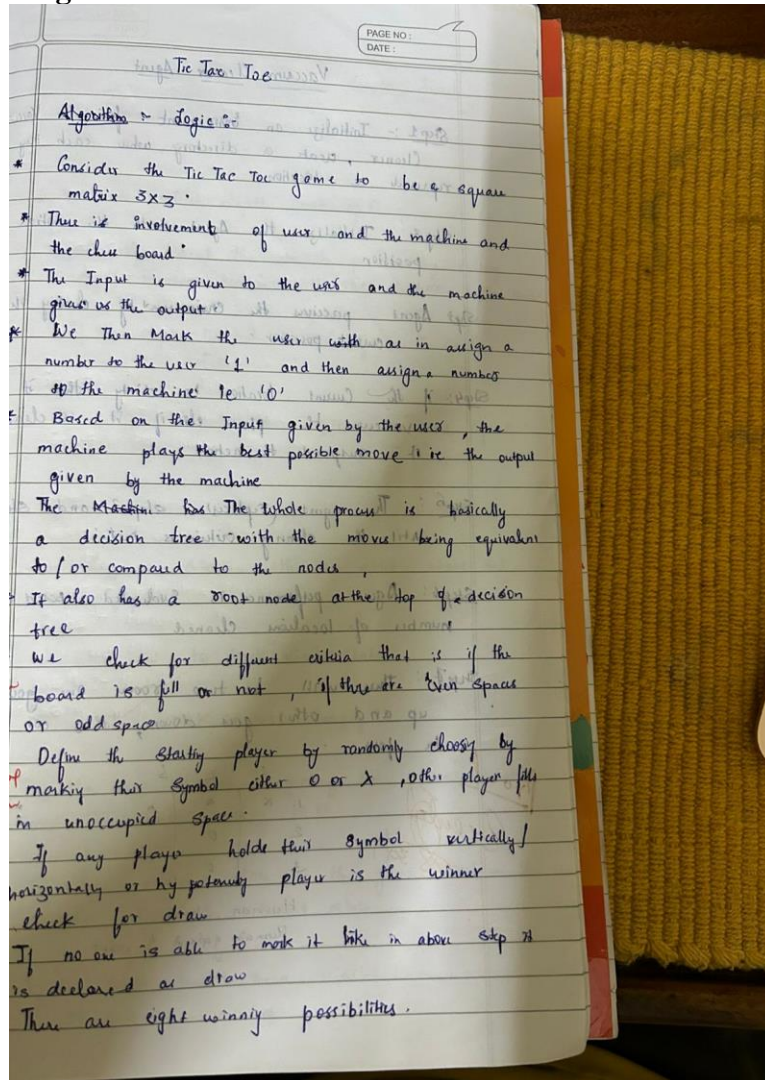 PAGE NO :
DATE :
Tic Tac Toe
Algorithm :- Logic :-
* Consider the Tic Tac Toe game to be a square
matrix 3x3 .
* There is involvement of user and the machine and
the chess board .
* The Input is given to the user and the machine
gives us the output
* We Then Mark the user with as in assign a
number to the user '1' and then assign a number
to the machine ie '0'
* Based on the Input given by the user , the
machine plays the best possible move ie the output
given by the machine
The Machine has The whole process is basically
a decision tree with the moves being equivalent
to / or compared to the nodes ,
It also has a root node at the top of a decision
tree
We check for different criteria that is if the
board is full or not , if there are even spaces
or odd space
Define th starting player by randomly choosy by
markiy their symbol either O or X , other player fills
in unoccupied space .
If any playe holds their symbol vertically /
horizontally or hypotenuly player is the winner
check for draw
If no one is able to mark it like in above step it
is declared as draw
There are eight winniy possibilities .